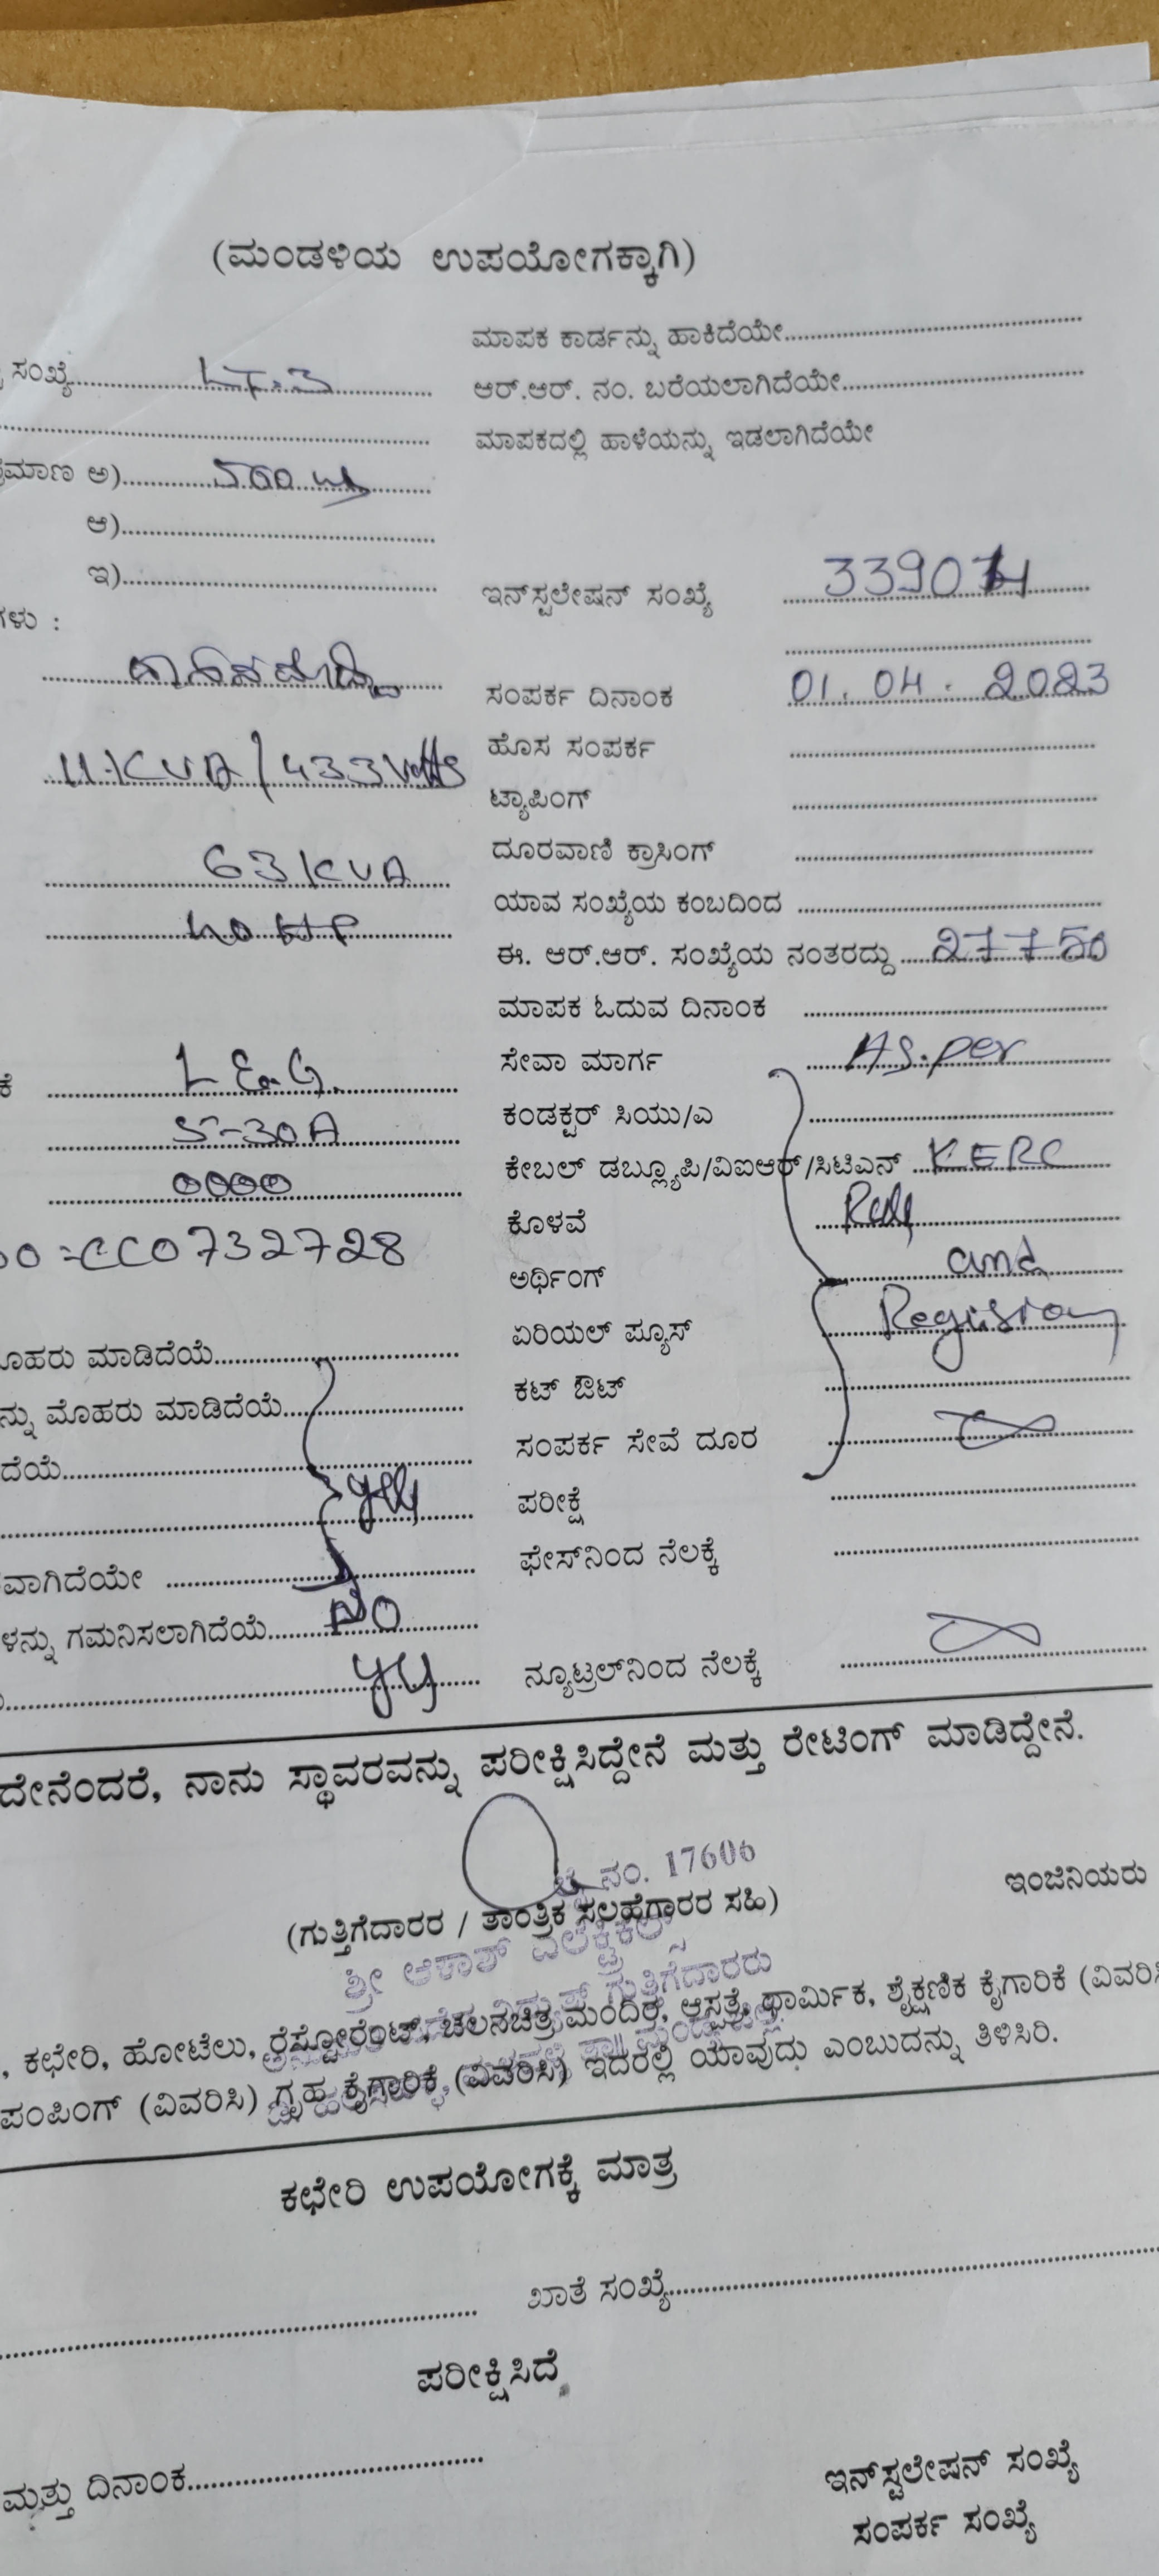 (ಮಂಡಳಿಯ ಉಪಯೋಗಕ್ಕಾಗಿ)
ಮಾಪಕ ಕಾರ್ಡನ್ನು ಹಾಕಿದೆಯೇ
ಸಂಖ್ಯೆ LT-3
ಆರ್.ಆರ್. ನಂ. ಬರೆಯಲಾಗಿದೆಯೇ
ಮಾಪಕದಲ್ಲಿ ಹಾಳೆಯನ್ನು ಇಡಲಾಗಿದೆಯೇ
ಅ) 500
ಆ)
ಇ)
ಇನ್‌ಸ್ಟಲೇಷನ್ ಸಂಖ್ಯೆ
ಗಳು :
ಸಂಪರ್ಕ ದಿನಾಂಕ 01.04.2023
ಹೊಸ ಸಂಪರ್ಕ
11KVA/433Volts
ಟ್ಯಾಪಿಂಗ್
ದೂರವಾಣಿ ಕ್ರಾಸಿಂಗ್
63KVA
ಯಾವ ಸಂಖ್ಯೆಯ ಕಂಬದಿಂದ
40 HP
ಈ. ಆರ್.ಆರ್. ಸಂಖ್ಯೆಯ ನಂತರದ್ದು 27750
ಮಾಪಕ ಓದುವ ದಿನಾಂಕ
ಕೆ L&G.
ಸೇವಾ ಮಾರ್ಗ As.per
5-30A
ಕಂಡಕ್ಟರ್ ಸಿಯು/ಎ
0000
ಕೇಬಲ್ ಡಬ್ಲ್ಯೂಪಿ/ವಿಐಆರ್/ಸಿಟಿಎನ್ KERC
ಕೊಳವೆ
CC0732728
ಅರ್ಥಿಂಗ್ and
ಏರಿಯಲ್ ಪ್ಯೂಸ್
ಮಾಡಿದೆಯೆ
ಕಟ್ ಔಟ್
ಮೊಹರು ಮಾಡಿದೆಯೆ
ಸಂಪರ್ಕ ಸೇವೆ ದೂರ
ದೆಯೆ
ಪರೀಕ್ಷೆ
ಫೇಸ್‌ನಿಂದ ನೆಲಕ್ಕೆ
ವಾಗಿದೆಯೇ
ಗಮನಿಸಲಾಗಿದೆಯೆ NO
ನ್ಯೂಟ್ರಲ್‌ನಿಂದ ನೆಲಕ್ಕೆ
ದೇನೆಂದರೆ, ನಾನು ಸ್ಥಾವರವನ್ನು ಪರೀಕ್ಷಿಸಿದ್ದೇನೆ ಮತ್ತು ರೇಟಿಂಗ್ ಮಾಡಿದ್ದೇನೆ.
ನಂ. 17606
ಇಂಜಿನಿಯರು
(ಗುತ್ತಿಗೆದಾರರ / ತಾಂತ್ರಿಕ ಸಲಹೆಗಾರರ ಸಹಿ)
ಶ್ರೀ ಆಕಾಶ್ ಎಲೆಕ್ಟ್ರಿಕಲ್ಸ್
ಗುತ್ತಿಗೆದಾರರು
, ಕಛೇರಿ, ಹೋಟೆಲು, ರೆಸ್ಟೋರೆಂಟ್, ಚಲನಚಿತ್ರ ಮಂದಿರ, ಆಸ್ಪತ್ರೆ, ಧಾರ್ಮಿಕ, ಶೈಕ್ಷಣಿಕ ಕೈಗಾರಿಕೆ
ಪಂಪಿಂಗ್ (ವಿವರಿಸಿ) ಗೃಹ ಕೈಗಾರಿಕೆ (ವಿವರಿಸಿ) ಇದರಲ್ಲಿ ಯಾವುದು ಎಂಬುದನ್ನು ತಿಳಿಸಿರಿ.
ಕಛೇರಿ ಉಪಯೋಗಕ್ಕೆ ಮಾತ್ರ
ಖಾತೆ ಸಂಖ್ಯೆ
ಪರೀಕ್ಷಿಸಿದೆ
ಮತ್ತು ದಿನಾಂಕ
ಇನ್‌ಸ್ಟಲೇಷನ್ ಸಂಖ್ಯೆ
ಸಂಪರ್ಕ ಸಂಖ್ಯೆ